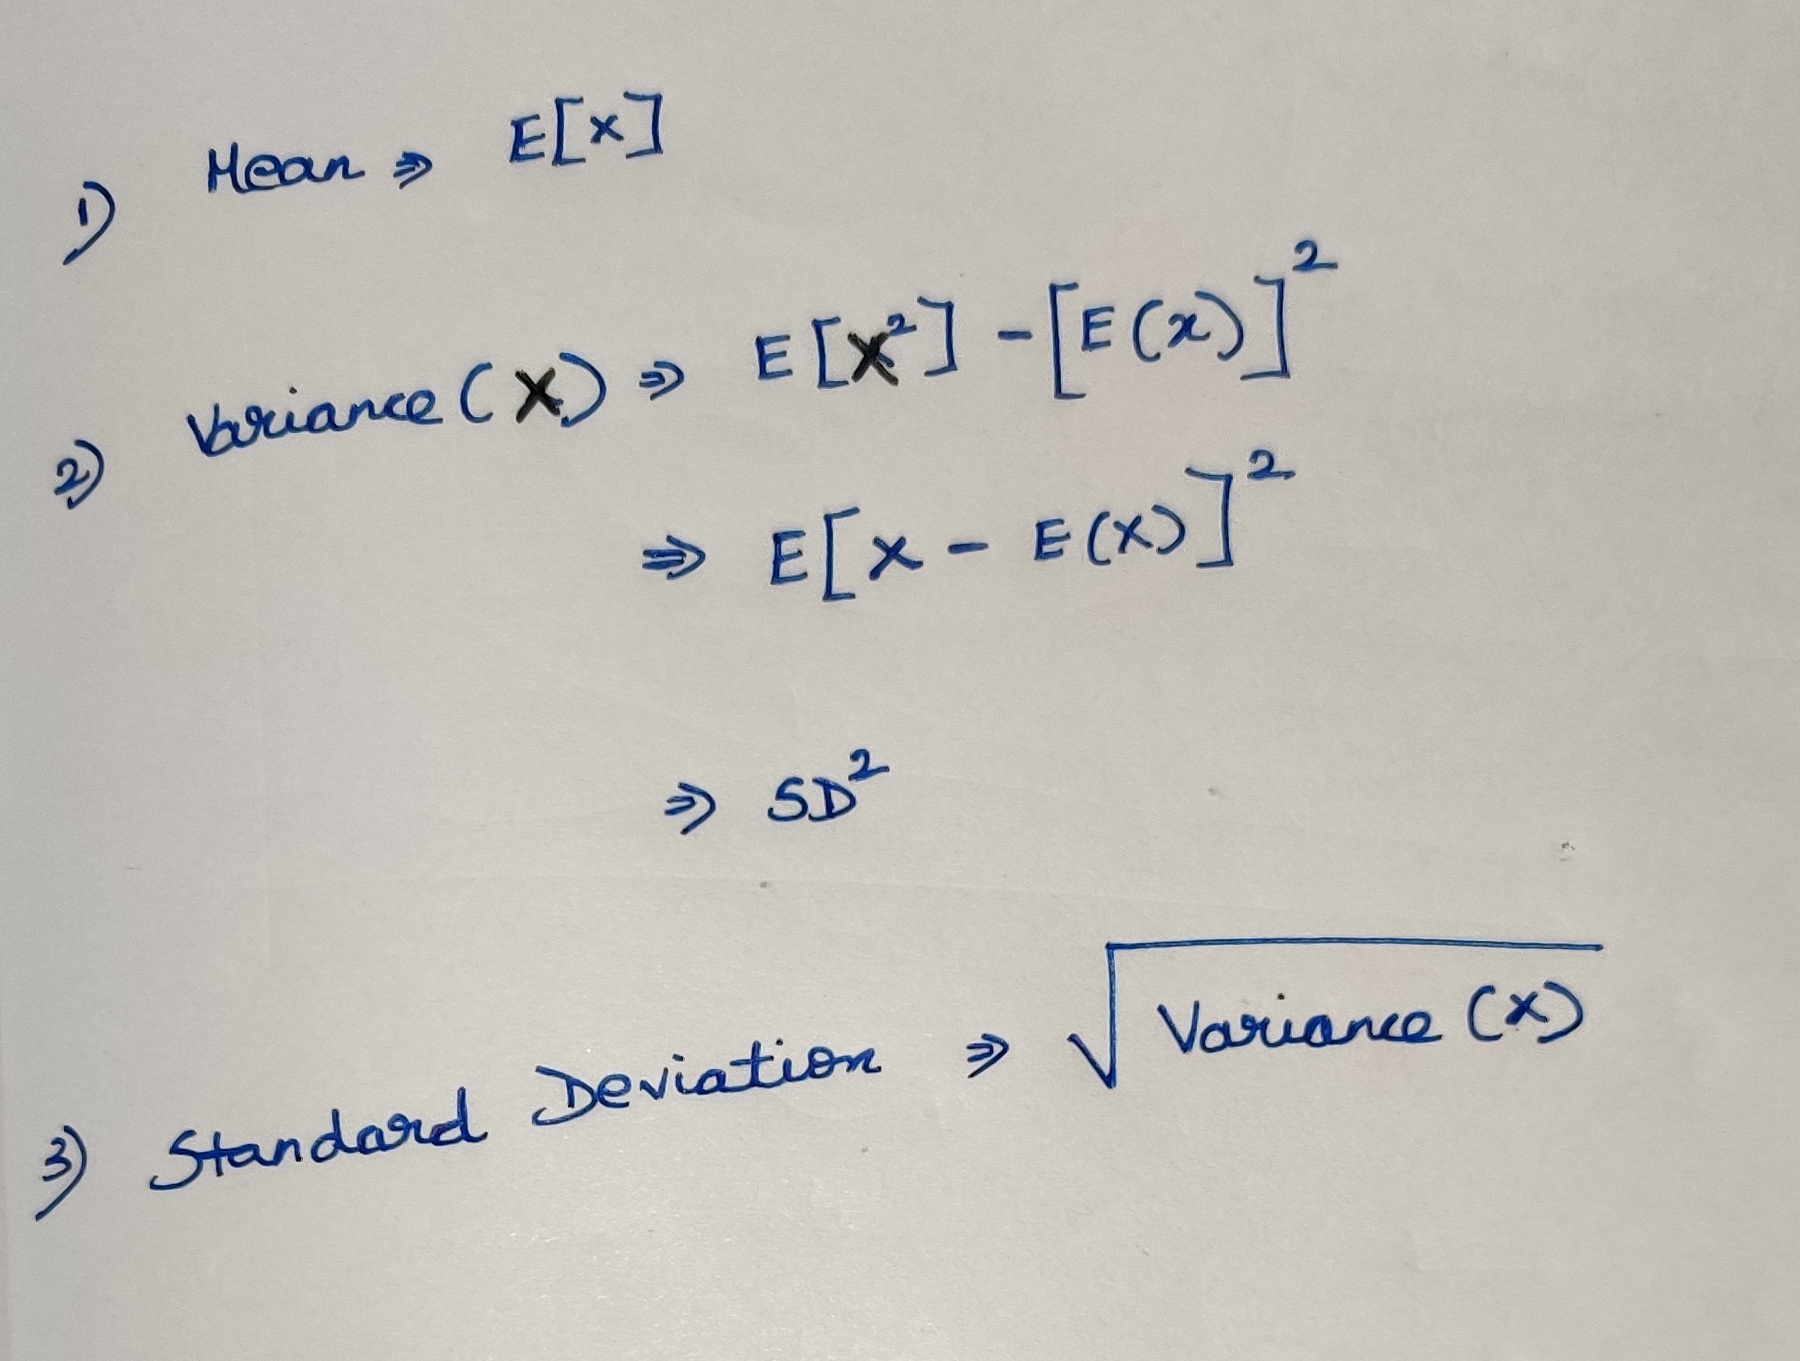 1) Mean ⇒ E[X]
2) Variance (X) ⇒ E[X²] - [E(x)]²
⇒ E[X - E(X)]²
⇒ SD²
3) Standard Deviation ⇒ √Variance (X)